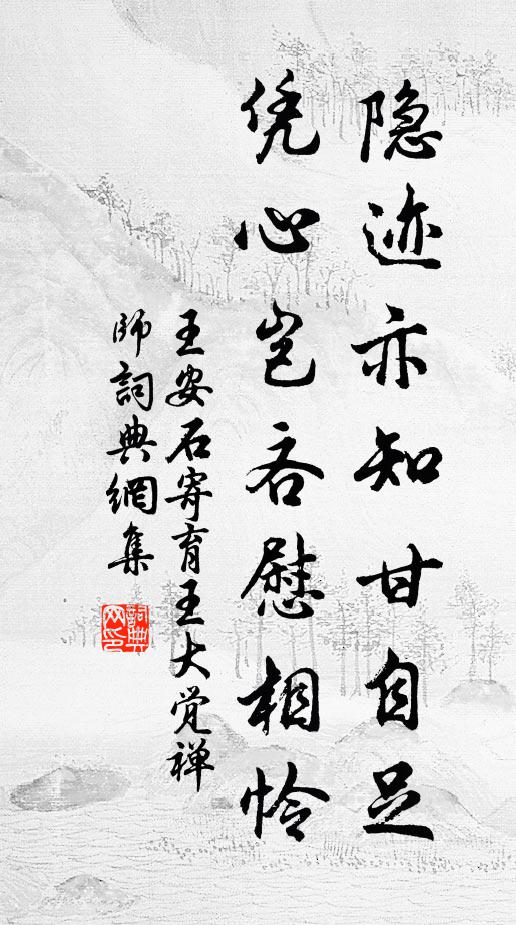 隐迹亦知甘自足
凭心岂吝慰相怜
王安石寄育王大觉禅
师詞典網集
詞典网印